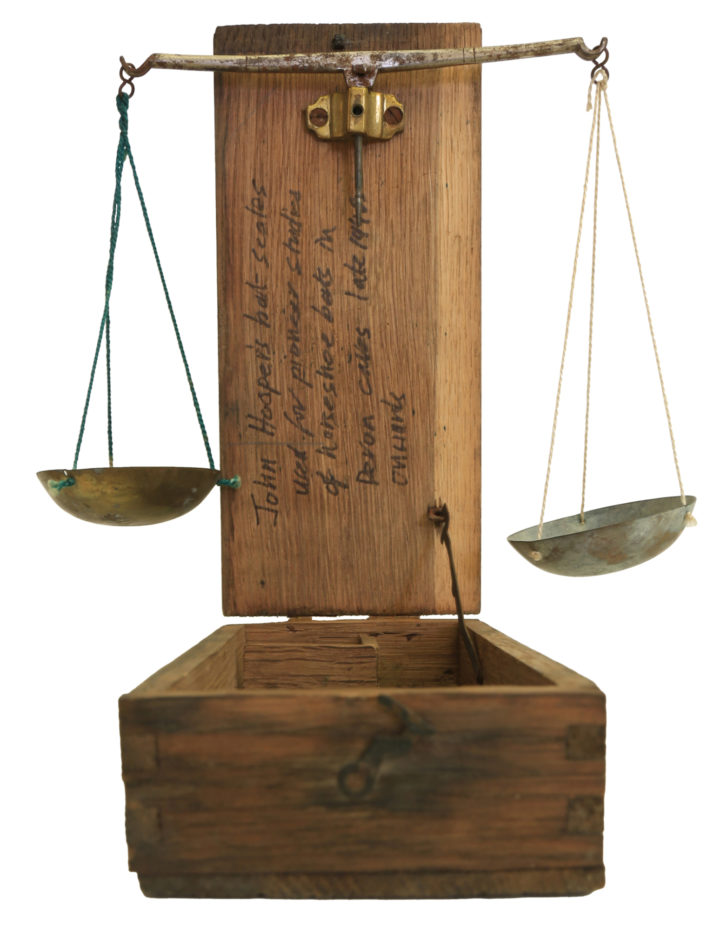 John Hooper's bat scales
used for pioneer studies
of horseshoe bats in
Devon caves late 1940s
onwards